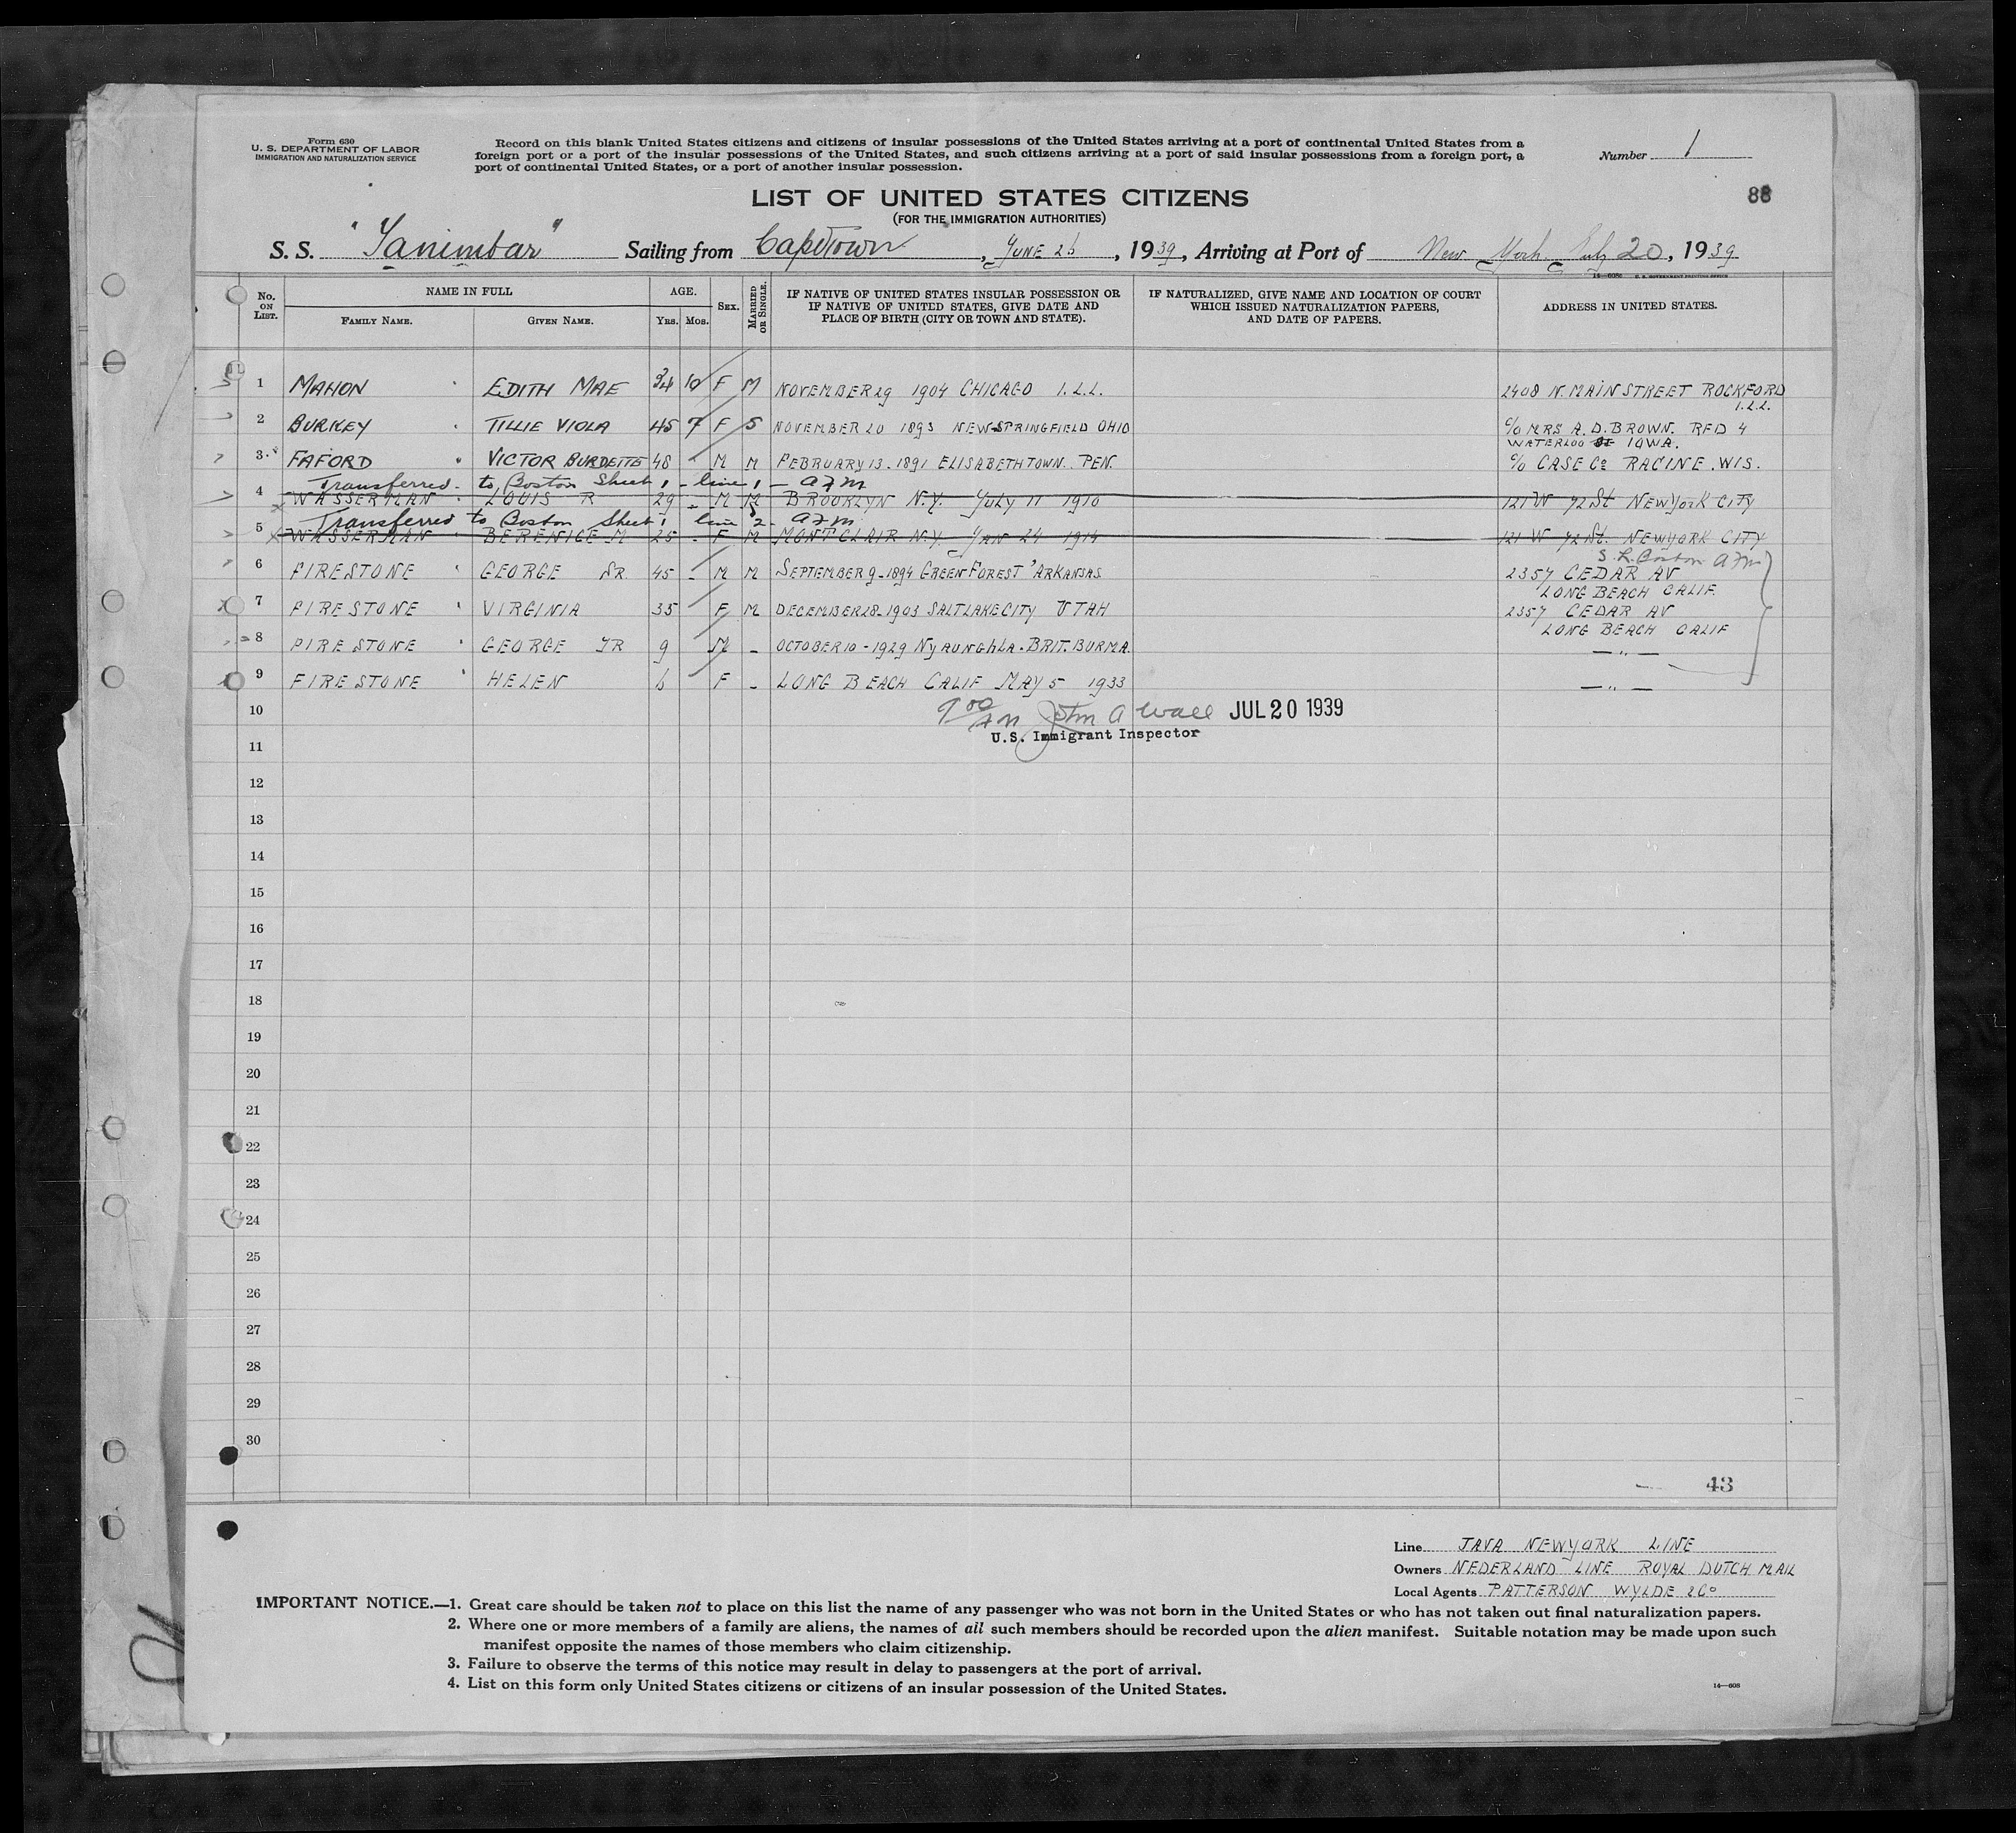 Form 630
U. S. DEPARTMENT OF LABOR
IMMIGRATION AND NATURALIZATION SERVICE
Record on this blank United States citizens and citizens of insular possessions of the United States arriving at a port of continental United States from a
foreign port or a port of the insular possessions of the United States, and such citizens arriving at a port of said insular possessions from a foreign port, a
port of continental United States, or a port of another insular possession.
Number 1
88
LIST OF UNITED STATES CITIZENS
(FOR THE IMMIGRATION AUTHORITIES)
S. S. "Tanimbar" Sailing from CapeTown, JUNE 26, 1939, Arriving at Port of New York July 20, 1939
No. ON LIST. NAME IN FULL FAMILY NAME. GIVEN NAME. AGE. YRS. MOS. SEX. MARRIED OR SINGLE. IF NATIVE OF UNITED STATES INSULAR POSSESSION OR IF NATIVE OF UNITED STATES, GIVE DATE AND PLACE OF BIRTH (CITY OR TOWN AND STATE). IF NATURALIZED, GIVE NAME AND LOCATION OF COURT WHICH ISSUED NATURALIZATION PAPERS, AND DATE OF PAPERS. ADDRESS IN UNITED STATES.
1 MAHON EDITH MAE 34 10 F M NOVEMBER 29 1904 CHICAGO I.L.L. 2408 N. MAIN STREET ROCKFORD
I.L.L.
2 BURKEY TILLIE VIOLA 45 7 F S NOVEMBER 20 1893 NEW-SPRINGFIELD OHIO C/O MRS A. D. BROWN. RFD 4
WATERLOO IOWA.
3 FAFORD VICTOR BURDETTE 48 - M M FEBRUARY 13-1891 ELISABETHTOWN. PEN. C/O CASE Co RACINE. WIS.
Transferred to Boston Sheet 1 - line 1 - AFM
4 WASSERMAN LOUIS R 29 - M M BROOKLYN N.Y. JULY 11 1910 121 W 72 St NEW YORK CITY
Transferred to Boston Sheet 1 line 2 - AFM
5 WASSERMAN BERENICE M 25 - F M MONTCLAIR N.Y. JAN 24 1914 121 W 72 St. NEW YORK CITY
Boston AFM
6 FIRESTONE GEORGE SR. 45 - M M SEPTEMBER 9-1894 GREEN FOREST ARKANSAS 2357 CEDAR AV
LONG BEACH CALIF.
7 FIRESTONE VIRGINIA 35 F M DECEMBER 28-1903 SALT LAKE CITY UTAH 2357 CEDAR AV
LONG BEACH CALIF
8 FIRESTONE GEORGE JR 9 M - OCTOBER 10-1929 NYAUNGHLA. BRIT. BURMA. — " —
9 FIRESTONE HELEN 6 F - LONG BEACH CALIF MAY 5 1933 — " —
10
9 00 AM John A Wall JUL 20 1939
U.S. Immigrant Inspector
11
12
13
14
15
16
17
18
19
20
21
22
23
24
25
26
27
28
29
30
43
Line JAVA NEWYORK LINE
Owners NEDERLAND LINE ROYAL DUTCH MAIL
Local Agents PATTERSON WYLDE & Co
IMPORTANT NOTICE.—1. Great care should be taken not to place on this list the name of any passenger who was not born in the United States or who has not taken out final naturalization papers.
2. Where one or more members of a family are aliens, the names of all such members should be recorded upon the alien manifest. Suitable notation may be made upon such
manifest opposite the names of those members who claim citizenship.
3. Failure to observe the terms of this notice may result in delay to passengers at the port of arrival.
4. List on this form only United States citizens or citizens of an insular possession of the United States.
14—608